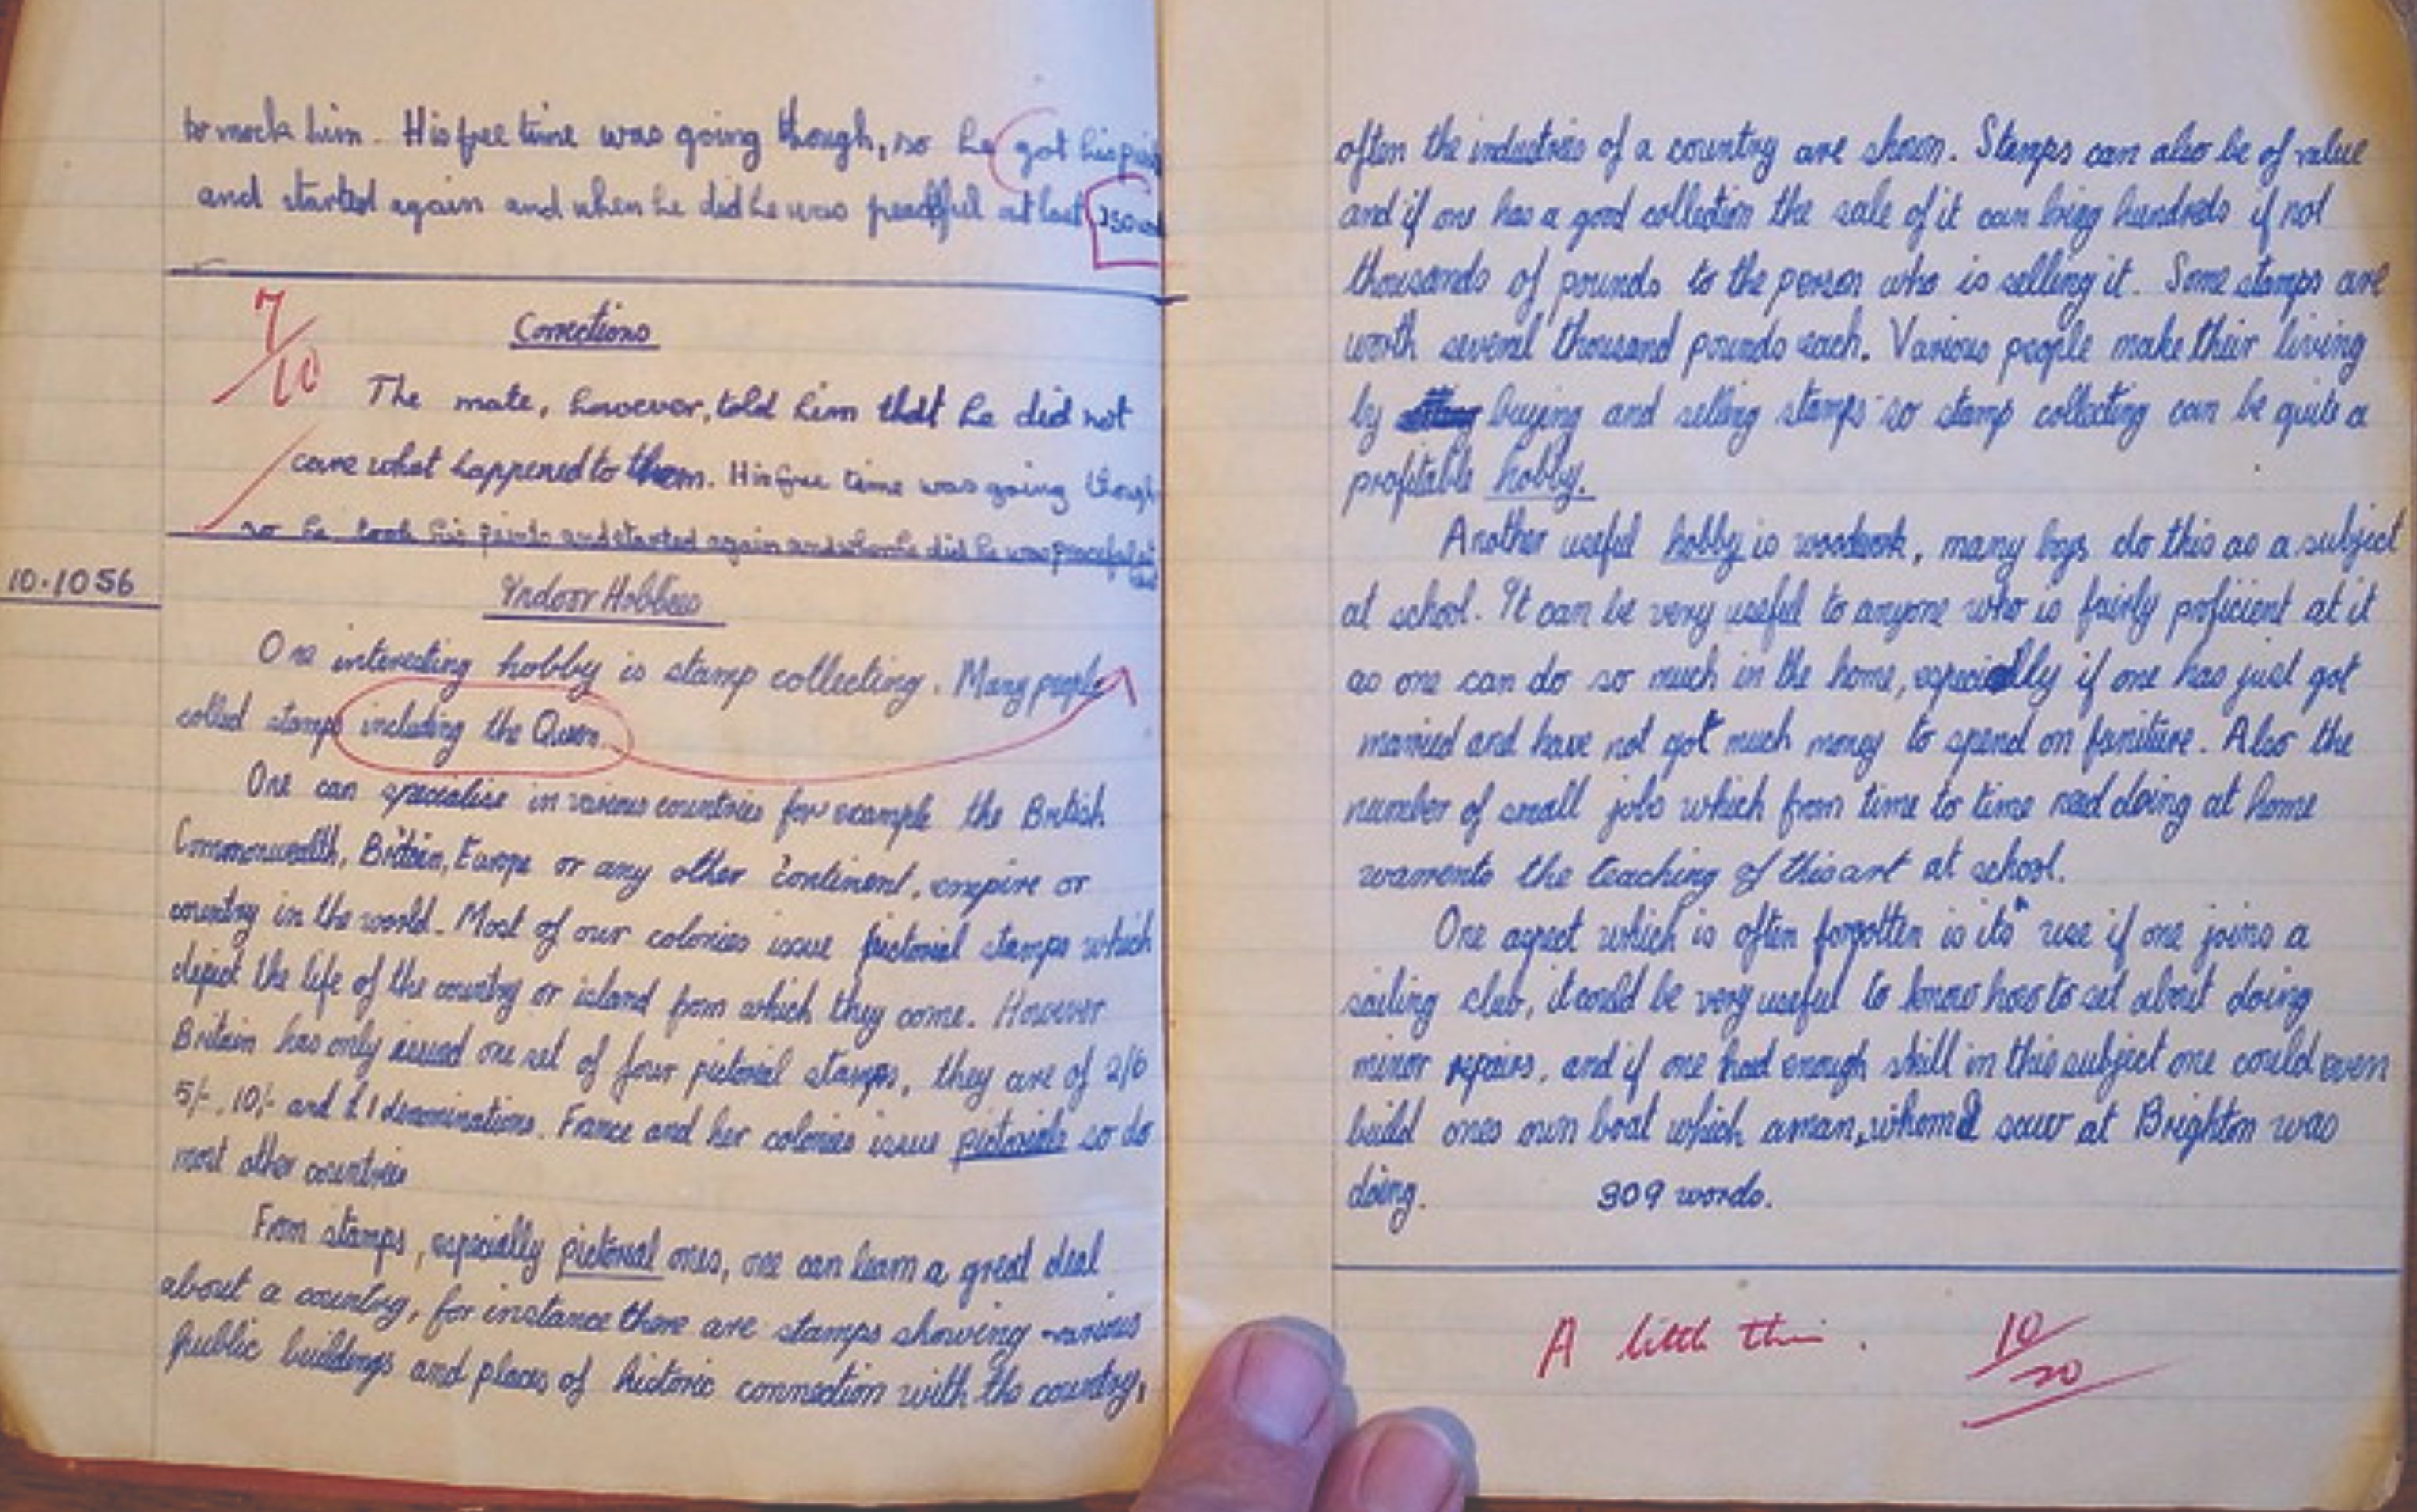 to mock him. His free time was going though, so he got his
and started again and when he did he was peacefful at last
7/10
Corrections
The mate, however, told him that he did not
care what happened to them. His free time was going though
so he took his paints and started again and when he did he was peaceful at
last
10.10 56
Indoor Hobbies
One interesting hobby is stamp collecting. Many people
collect stamps including the Queen.
One can specialise in various countries for example the British
Commonwealth, Britain, Europe or any other continent, empire or
country in the world. Most of our colonies issue pictorial stamps which
depict the life of the country or island from which they come. However
Britain has only issued one set of four pictorial stamps, they are of 2/6
5/-, 10/- and £1 denominations. France and her colonies issue pictorials so do
most other countries
From stamps, especially pictorial ones, one can learn a great deal
about a country, for instance there are stamps showing various
public buildings and places of historic connection with the country,
often the industries of a country are shown. Stamps can also be of value
and if one has a good collection the sale of it can bring hundreds if not
thousands of pounds to the person who is selling it. Some stamps are
worth several thousand pounds each. Various people make their living
by buying and selling stamps so stamp collecting can be quite a
profitable hobby.
Another useful hobby is woodwork, many boys do this as a subject
at school. It can be very useful to anyone who is fairly proficient at it
as one can do so much in the home, especially if one has just got
married and have not got much money to spend on funiture. Also the
number of small jobs which from time to time need doing at home
warrents the teaching of this art at school.
One aspect which is often forgotten is its use if one joins a
sailing club, it could be very useful to know how to set about doing
minor repairs, and if one had enough skill in this subject one could even
build ones own boat which a man, whom I saw at Brighton was
doing. 309 words.
A little thin. 10/20